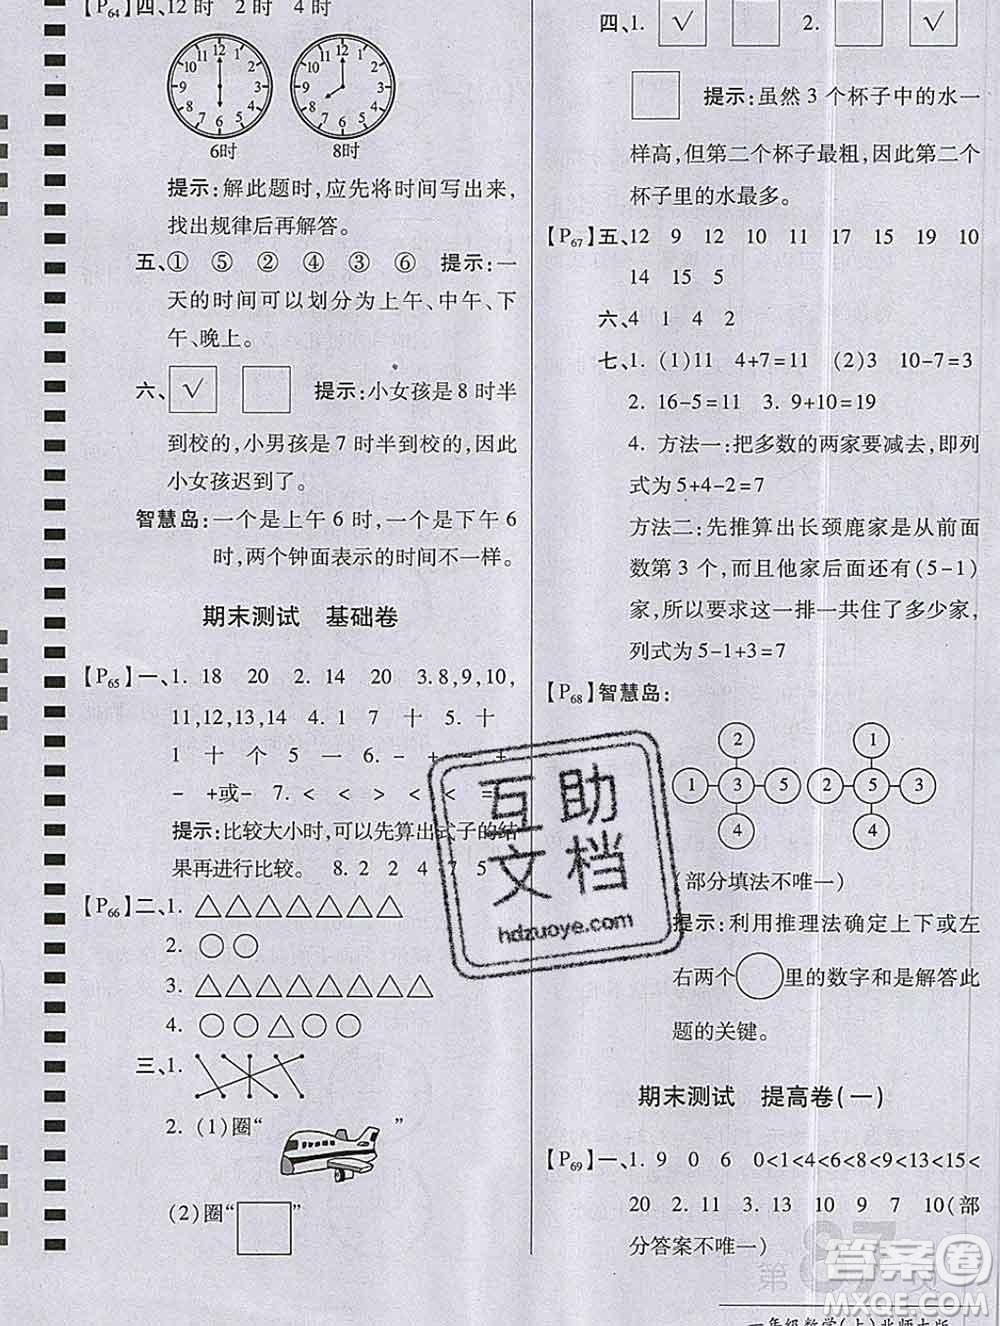 【P64】四、12时 2时 4时
11 12 1
10 2
9 3
8 4
7 6 5
11 12 1
10 2
9 3
8 4
7 6 5
6时 8时
提示:解此题时,应先将时间写出来,
找出规律后再解答。
五、① ⑤ ② ④ ③ ⑥ 提示:一
天的时间可以划分为上午、中午、下
午、晚上。
六、√ 提示:小女孩是8时半
到校的,小男孩是7时半到校的,因此
小女孩迟到了。
智慧岛:一个是上午6时,一个是下午6
时,两个钟面表示的时间不一样。
期末测试 基础卷
【P65】一、1. 18 20 2. 14 20 3. 8,9,10,
11,12,13,14 4. 1 7 十 5. 十
1 十 个 5 一 6. - + - -
- +或- 7. < < > < < =
提示:比较大小时,可以先算出式子的结
果再进行比较。 8. 2 2 4 7 5
【P66】二、1. △△△△△△△
2. ○○
3. △△△△△△△△
4. ○○△○○
三、1.
2. (1)圈“ ”
(2)圈“□”
四、1. √ 2. √
提示:虽然3个杯子中的水一
样高,但第二个杯子最粗,因此第二个
杯子里的水最多。
【P67】五、12 9 12 10 11 19 10
14 15 5
六、4 1 4 2
七、1. (1)11 4+7=11 (2)3 10-7=3
2. 16-5=11 3. 9+10=19
4. 方法一:把多数的两家要减去,即列
式为5+4-2=7
方法二:先推算出长颈鹿家是从前面
数第3个,而其后面还应有(5-1)
家,所以要求这一排一共住了多少家,
列式为5-1+3=7
【P68】智慧岛:
2 1
1 3 5 2 5 3
4 4
(部分填法不唯一)
提示:利用推理法确定上下或左
右两个○里的数字和是解答此
题的关键。
期末测试 提高卷(一)
【P69】一、1. 9 0 6 0<1<4<6<9<15<
20 2. 11 3. 13 4. 9 7 10(部
分答案不唯一)
第87页
一年级数学(上)北师大版
互助
文档
hdzuoye.com
答案圈
MXQE.COM